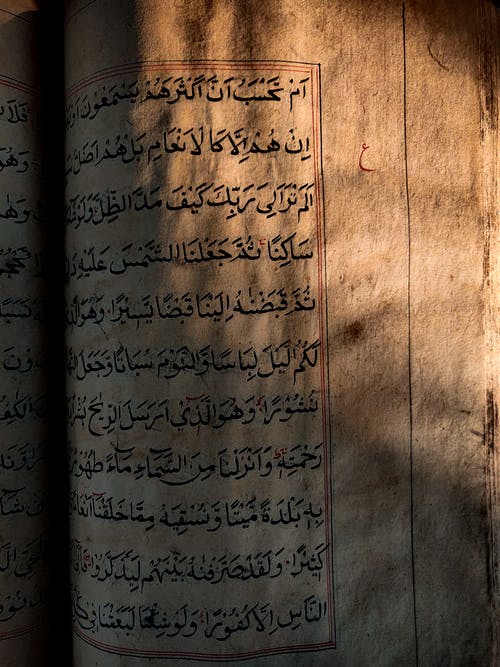 اَمْ تَحْسَبُ اَنَّ اَكْثَرَهُمْ يَسْمَعُونَ اَوْ
اِنْ هُمْ اِلَّا كَا لْاَنْعَامِ بَلْ هُمْ اَضَلُّ
ع
اَلَمْ تَرَ اِلَى رَبِّكَ كَيْفَ مَدَّ الظِّلَّ وَلَوْ
سَاكِنًا ثُمَّ جَعَلْنَا الشَّمْسَ عَلَيْهِ
ثُمَّ قَبَضْنٰهُ اِلَيْنَا قَبْضًا يَّسِيْرًا وَهُوَ الَّذِي
لَكُمُ الَّيْلَ لِبَاسًا وَّالنَّوْمَ سُبَاتًا وَّجَعَلَ
نُشُوْرًا وَهُوَ الَّذِيْ اَرْسَلَ الرِّيٰحَ بُشْرًا
رَحْمَتِهٖ وَاَنْزَلْنَا مِنَ السَّمَاءِ مَاءً طَهُوْرًا
بِهٖ بَلْدَةً مَّيْتًا وَّنُسْقِيَهٗ مِمَّا خَلَقْنَا اَنْعَامًا
كَثِيْرًا وَلَقَدْ صَرَّفْنٰهُ بَيْنَهُمْ لِيَذَّكَّرُوْا فَاَبٰى
النَّاسِ اِلَّا كُفُوْرًا وَلَوْ شِئْنَا لَبَعَثْنَا فِيْ كُلِّ